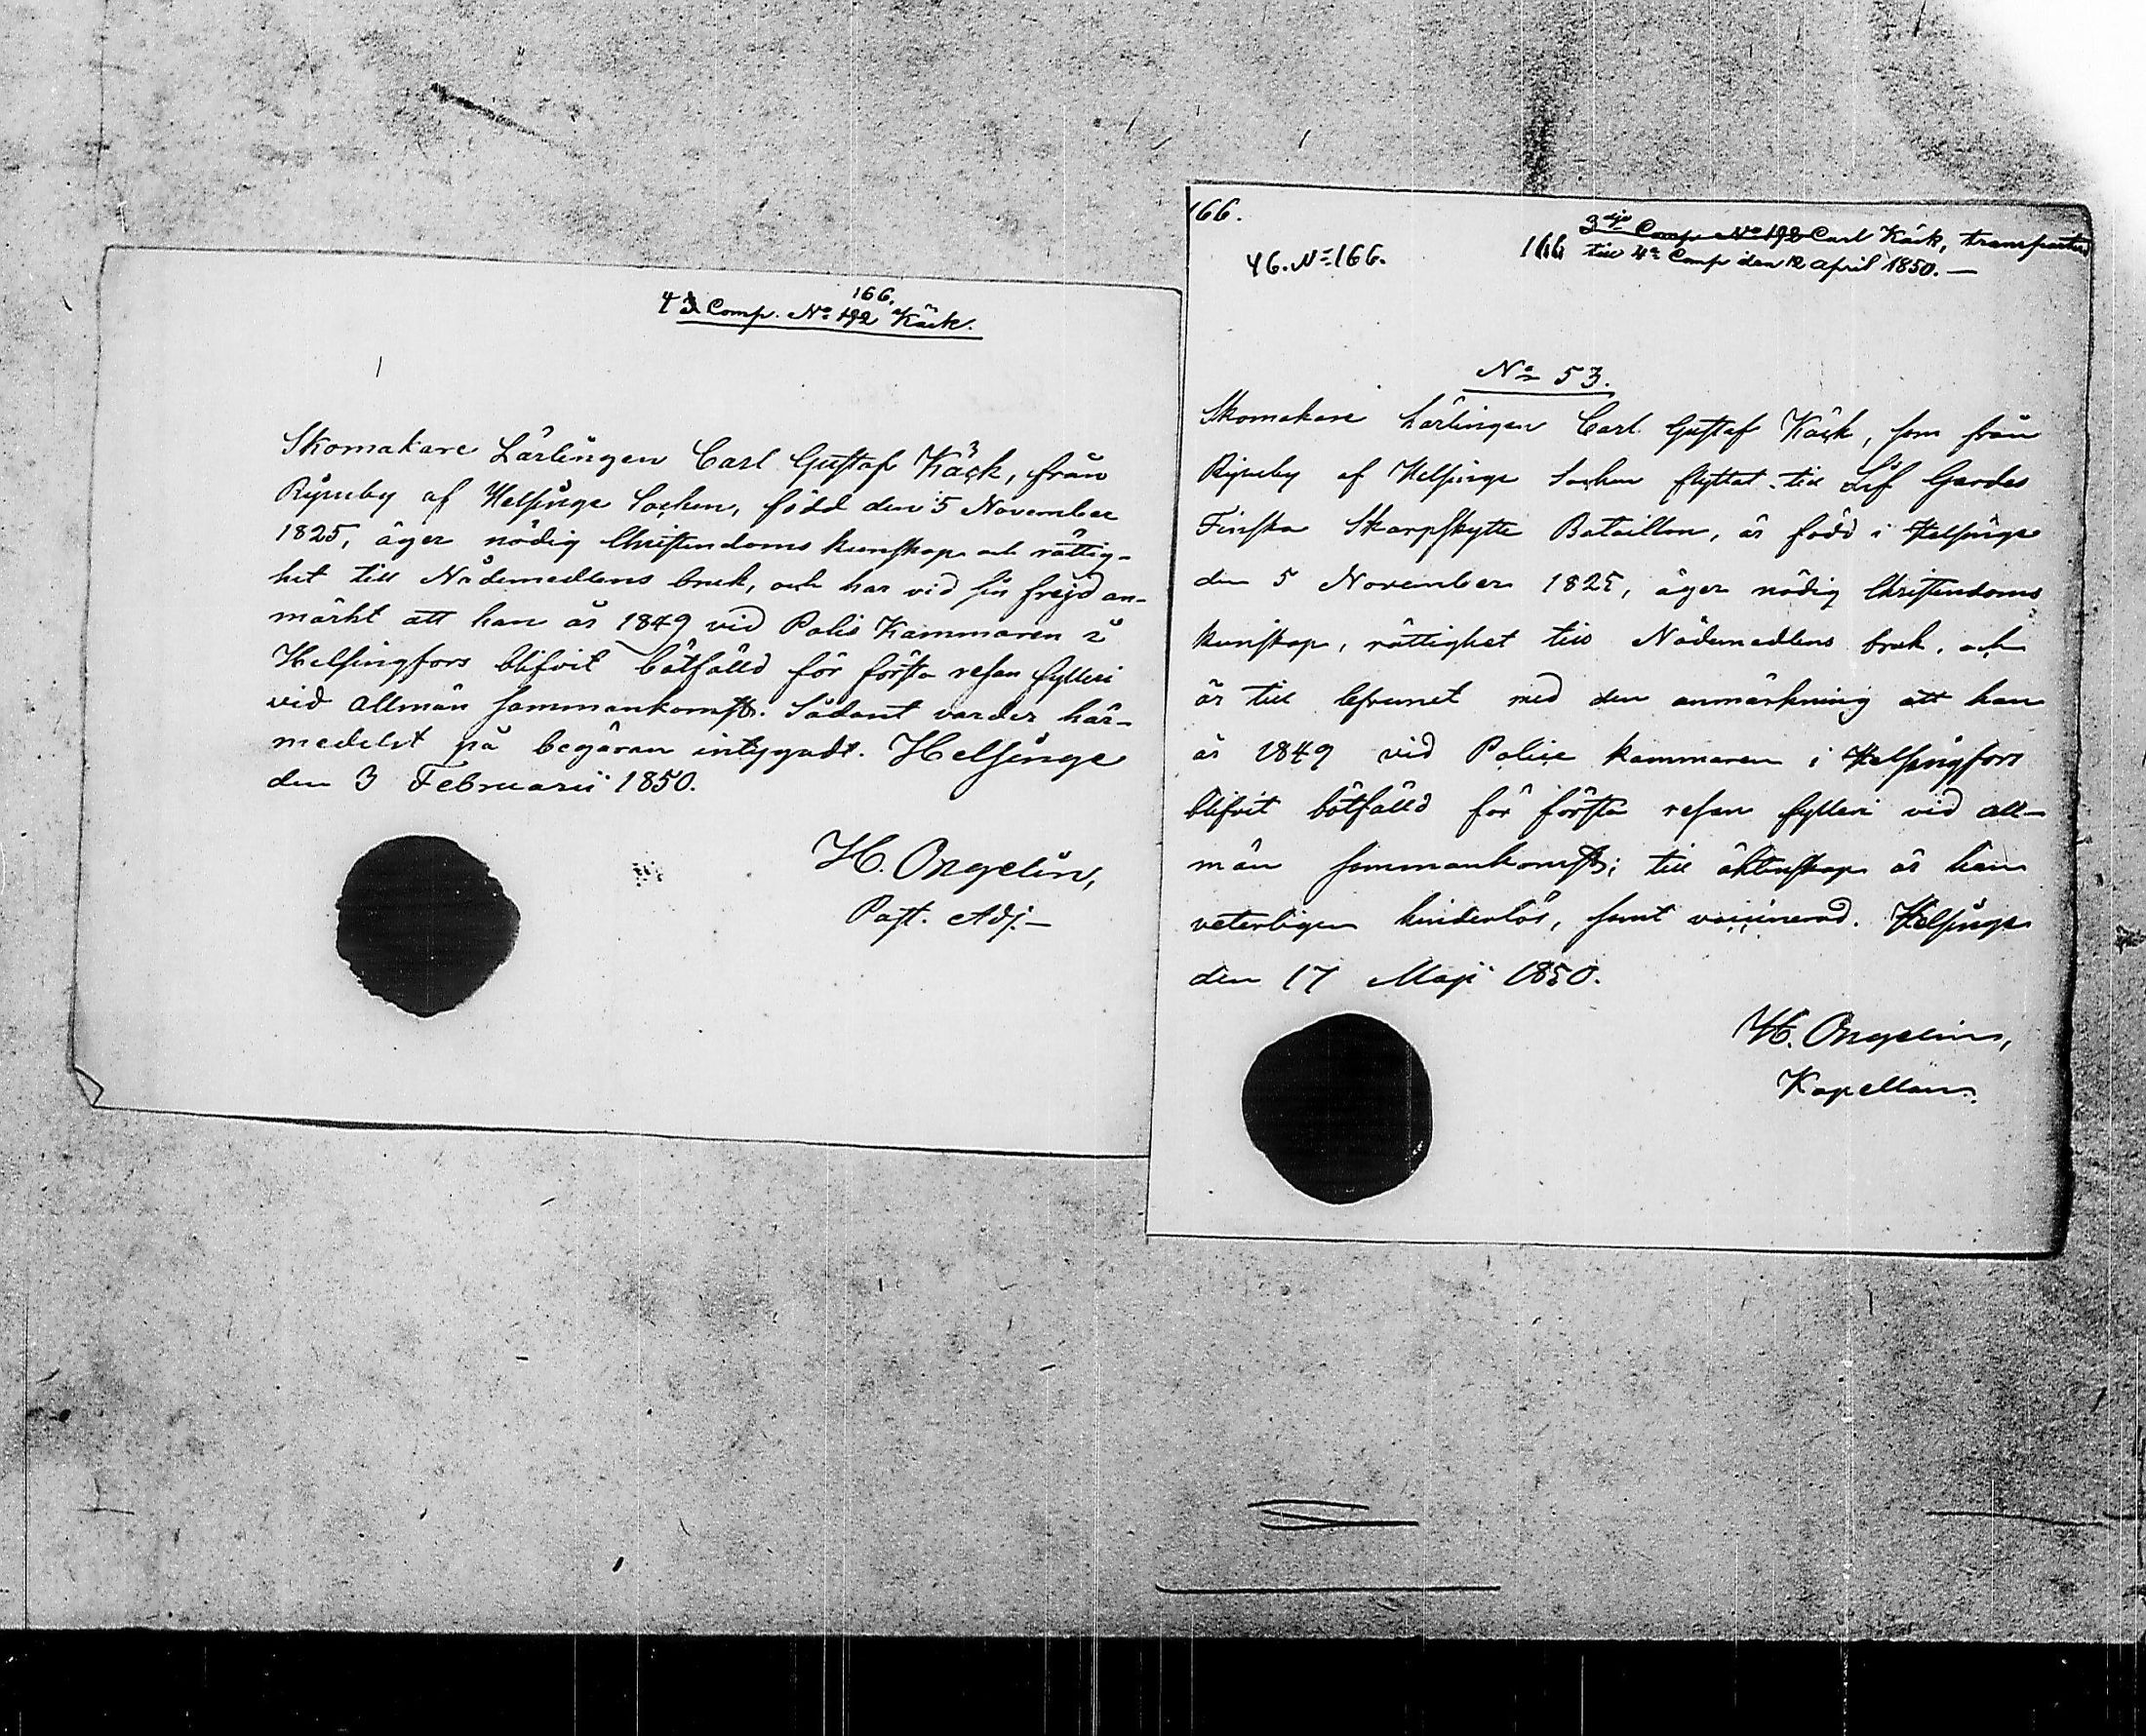 166.
4 3 Comp. No 192 Käck.
Skomakare Lärlingen Carl Gustaf Käck, från
af Helsinge Sochen, född den 5 November
1825, äger nödig Christendoms kunskap och rättig-
het till Nådemedlens bruk, och har vid sin frejd an-
märkt att han år 1849 vid Polis Kammaren i
Helsingfors blifvit bötfälld för första resan fylleri
vid allmän sammankomst. Sådant varder här-
medelst på begäran intygadt. Helsinge
den 3 Februarii 1850.
H. Ongelin,
Past. Adj.-
166.
46. No 166.
166 3dje Comp No 192 Carl Käck, transporterad
till 4e Comp den 12 april 1850. —
No 53.
Skomakare Lärlingen Carl Gustaf Käck, som från
af Helsinge Sochen flyttat till Lif Gardes
Finska Skarpskytte Bataillon, är född i Helsinge
den 5 November 1825, äger nödig Christendoms
kunskap, rättighet till Nådemedlens bruk, och
är till lefvernet med den anmärkning att han
år 1849 vid Police kammaren i Helsingfors
blifvit bötfälld för första resan fylleri vid all-
män sammankomst; till äktenskap är han
veterligen hinderlös, samt vaccinerad. Helsinge
den 17 Maji 1850.
H. Ongelin,
Kapellan.